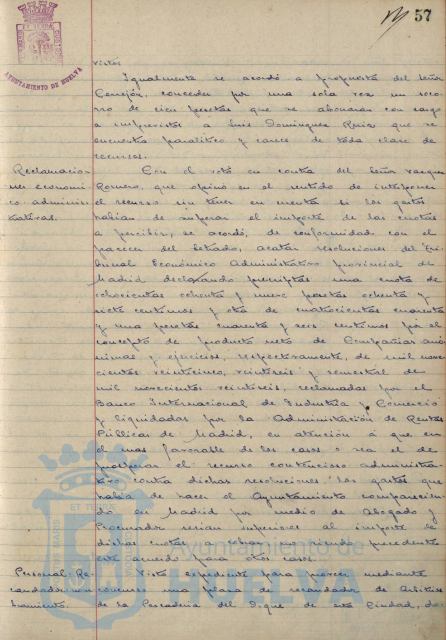 57
AYUNTAMIENTO DE HUELVA
vistos
Igualmente se acordó a propuesta del señor
Cerejón, conceder por una sola vez un soco-
rro de cien pesetas que se abonaran con cargo
a imprevistos a Luis Dominguez Ruiz que se
encuentra paralitico y carece de toda clase de
recursos.
Reclamacio-
nes economi-
co adminis-
trativas.
Con el voto en contra del señor Vazquez
Romero, que opinó en el sentido de interponer
el recurso sin tener en cuenta si los gastos
habian de superar el importe de las cuotas
a percibir, se acordó, de conformidad con el
parecer del Letrado, acatar resoluciones del Tri-
bunal Económico Administrativo provincial de
Madrid declarando prescriptas una cuota de
ochocientas ochenta y nueve pesetas ochenta y
siete centimos y otra de cuatrocientas cuarenta
y una pesetas cuarenta y seis centimos por el
concepto de producto neto de Compañias anó-
nimas y ejercicios, respectivamente, de mil nove
cientos veinticinco, veintiseis y semestral de
mil novecientos veintiseis, reclamadas por el
Banco Internacional de Industria y Comercio
y liquidadas por la Administración de Rentas
Públicas de Madrid, en atención á que en
el mas favorable de los casos o sea el de
prosperar el recurso contencioso administra
tivo contra dichas resoluciones los gastos que
habia de hacer el Ayuntamiento comparecien
do en Madrid por medio de Abogado y
Procurador serian superiores al importe de
dichas cuotas a cobrar no siendo precedente
este acuerdo para otros casos.
Personal: Re-
caudador
Visto expediente para proveer mediante
concurso una plaza de recaudador de Arbitrios
de la Pescaderia del Dique de esta Ciudad, de-
Ayuntamiento de
HUELVA